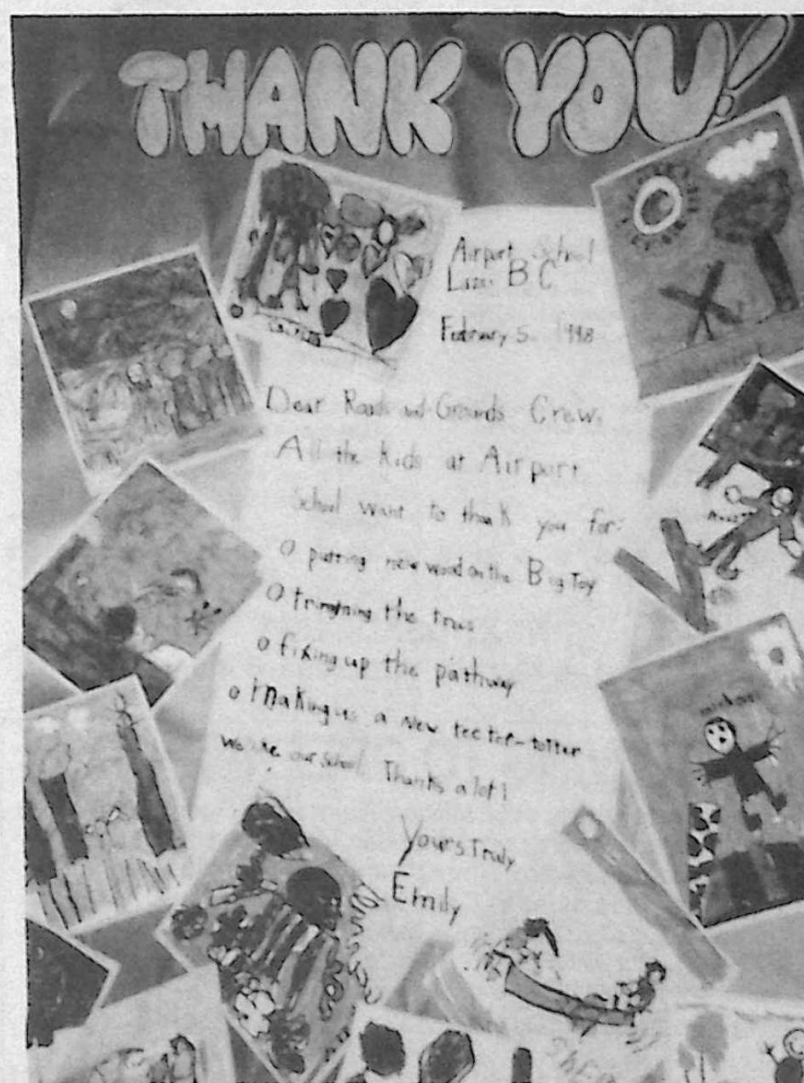 THANK YOU!
Airport School
Lazo B C
February 5 1998
Dear Roads and Grounds Crew,
All the kids at Airport
School want to thank you for:
o putting new wood on the Big Toy
o trimming the trees
o fixing up the pathway
o making us a new teeter-totter
We like our school. Thanks a lot!
Yours Truly
Emily